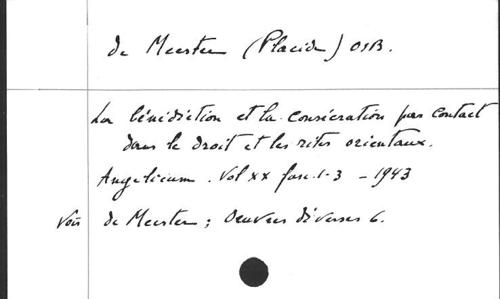 de Meester (Placide) OSB.
La bénédiction et la consécration par contact
dans le droit et les rites orientaux.
Angelicum. Vol XX fasc. 1-3 - 1943
Voir de Meester; Oeuvres diverses 6.